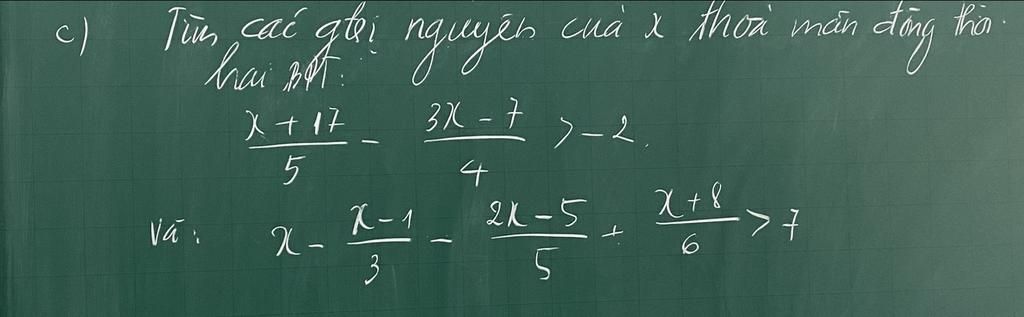 c) Tìm các gtrị nguyên của x thoả mãn đồng thời
hai BPT:
\frac{x+17}{5} - \frac{3x-7}{4} > -2.
Và: x - \frac{x-1}{3} - \frac{2x-5}{5} + \frac{x+8}{6} > 7